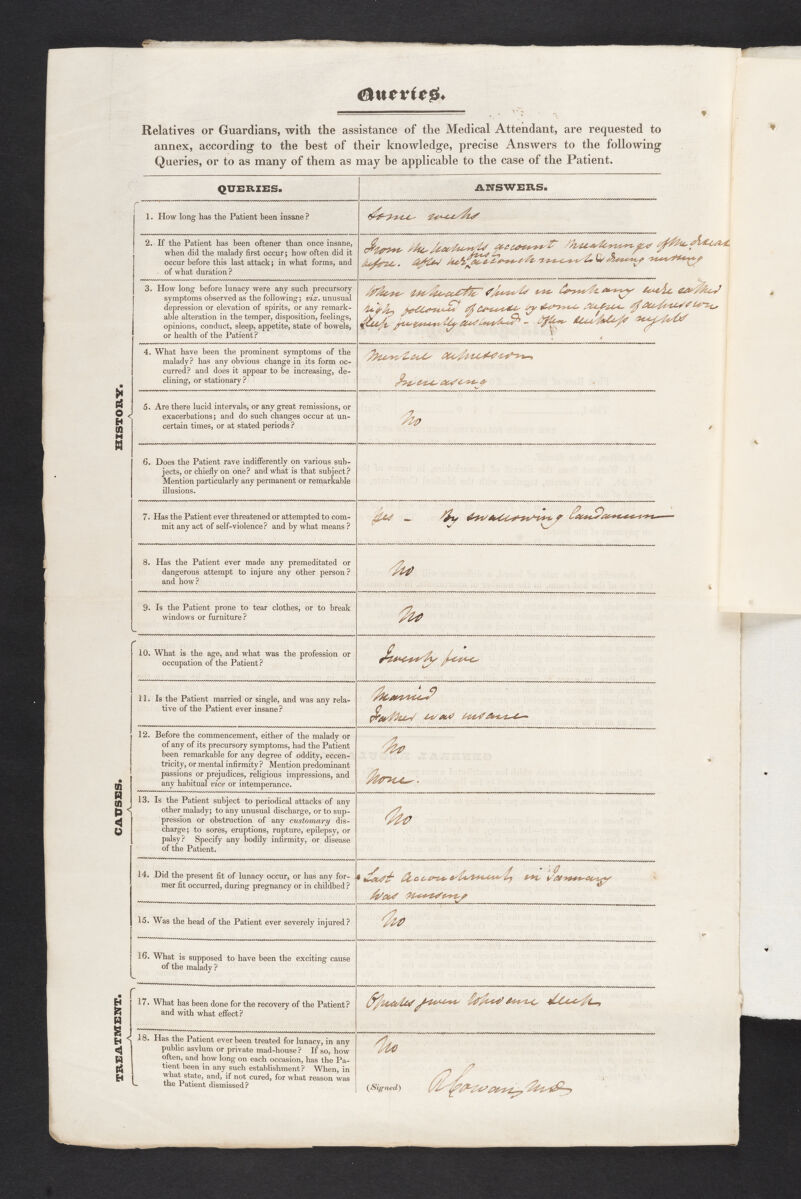 Queries.
Relatives or Guardians, with the assistance of the Medical Attendant, are requested to
annex, according to the best of their knowledge, precise Answers to the following
Queries, or to as many of them as may be applicable to the case of the Patient.
QUERIES.
ANSWERS.
HISTORY.
1. How long has the Patient been insane?
Some weeks
2. If the Patient has been oftener than once insane,
when did the malady first occur; how often did it
occur before this last attack; in what forms, and
of what duration?
From the Patients account threatenings of the disease
before. after her accouchments & during nursing
3. How long before lunacy were any such precursory
symptoms observed as the following; viz. unusual
depression or elevation of spirits, or any remark-
able alteration in the temper, disposition, feelings,
opinions, conduct, sleep, appetite, state of bowels,
or health of the Patient?
When in health spirits in Company were rather
high followed of course by some degree of depression
Sleep frequently disturbed - often sleepless nights
4. What have been the prominent symptoms of the
malady? has any obvious change in its form oc-
curred? and does it appear to be increasing, de-
clining, or stationary?
Mental depression
Increasing
5. Are there lucid intervals, or any great remissions, or
exacerbations; and do such changes occur at un-
certain times, or at stated periods?
No
6. Does the Patient rave indifferently on various sub-
jects, or chiefly on one? and what is that subject?
Mention particularly any permanent or remarkable
illusions.
7. Has the Patient ever threatened or attempted to com-
mit any act of self-violence? and by what means?
Yes - By swallowing laudanum
8. Has the Patient ever made any premeditated or
dangerous attempt to injure any other person?
and how?
No
9. Is the Patient prone to tear clothes, or to break
windows or furniture?
No
CAUSES.
10. What is the age, and what was the profession or
occupation of the Patient?
Twenty five
11. Is the Patient married or single, and was any rela-
tive of the Patient ever insane?
Married
Father was insane
12. Before the commencement, either of the malady or
of any of its precursory symptoms, had the Patient
been remarkable for any degree of oddity, eccen-
tricity, or mental infirmity? Mention predominant
passions or prejudices, religious impressions, and
any habitual vice or intemperance.
No
None.
13. Is the Patient subject to periodical attacks of any
other malady; to any unusual discharge, or to sup-
pression or obstruction of any customary dis-
charge; to sores, eruptions, rupture, epilepsy, or
palsy? Specify any bodily infirmity, or disease
of the Patient.
No
14. Did the present fit of lunacy occur, or has any for-
mer fit occurred, during pregnancy or in childbed?
Last Accouchment in January
Was nursing
15. Was the head of the Patient ever severely injured?
No
16. What is supposed to have been the exciting cause
of the malady?
TREATMENT.
17. What has been done for the recovery of the Patient?
and with what effect?
Opiates given to procure sleep
18. Has the Patient ever been treated for lunacy, in any
public asylum or private mad-house? If so, how
often, and how long on each occasion, has the Pa-
tient been in any such establishment? When, in
what state, and, if not cured, for what reason was
the Patient dismissed?
No
(Signed) R Cowan, MD